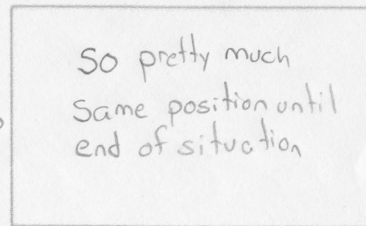 So pretty much
Same position until
end of situation